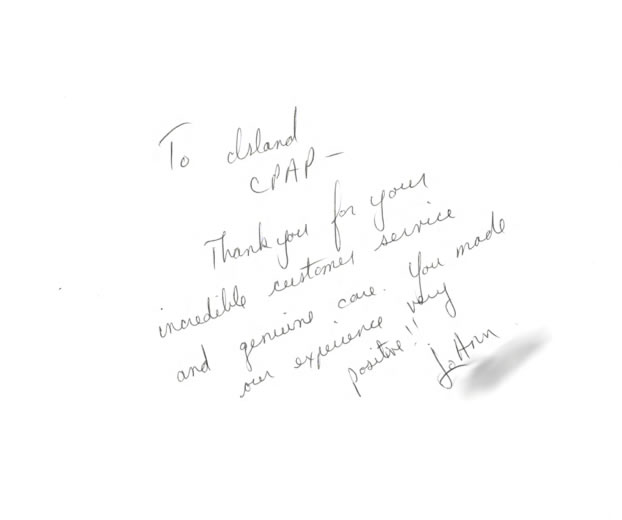 To Island
CPAP —
Thank you for your
incredible customer service
and genuine care. You made
our experience very
positive!!
JoAnn